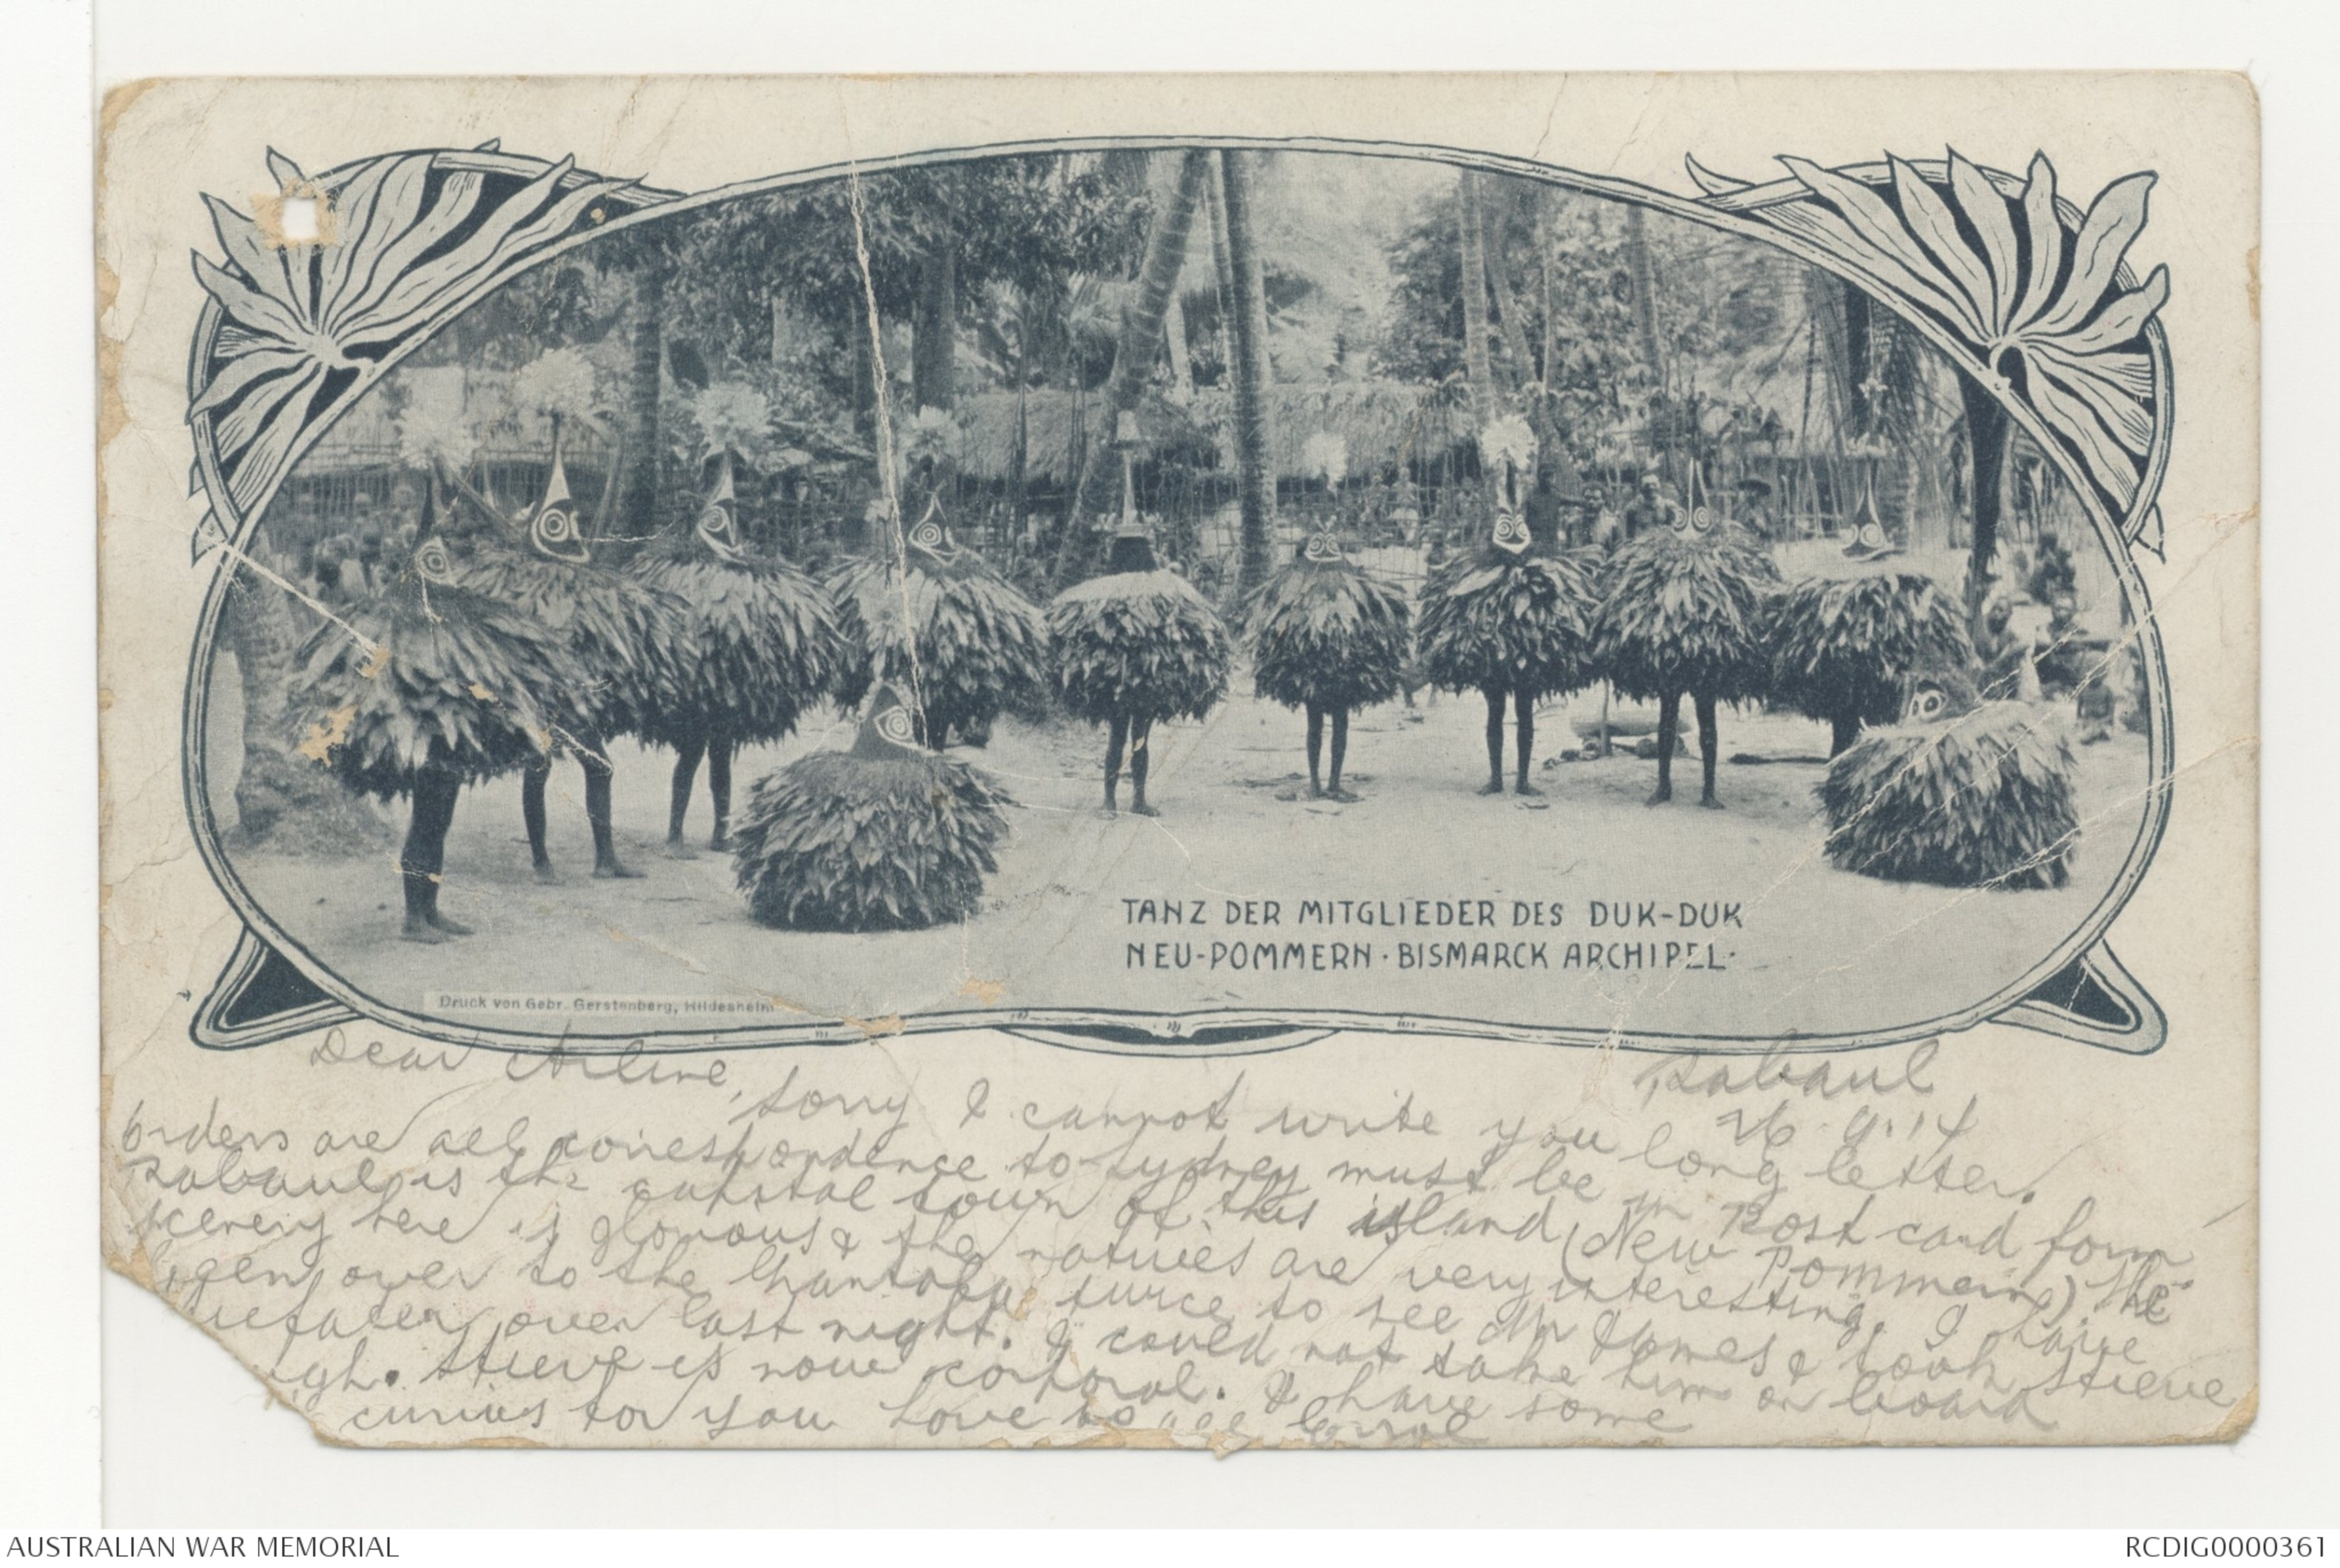 TANZ DER MITGLIEDER DES DUK-DUK
NEU-POMMERN · BISMARCK ARCHIPEL ·
Druck von Gebr. Gerstenberg, Hildesheim
Rabaul
26.9.14
Dear Arline,
Sorry I cannot write you long letter.
Orders are all correspondence to Sydney must be in Post card form
Rabaul is the capital town of this island (New Pommern) the
scenery here is glorious & the natives are very interesting. I have
over to the twice to see Mr & took Stieve
over last night. I could not take him on board
Stieve is now corporal. I have some
curios for you Love to all Errol
AUSTRALIAN WAR MEMORIAL
RCDIG0000361